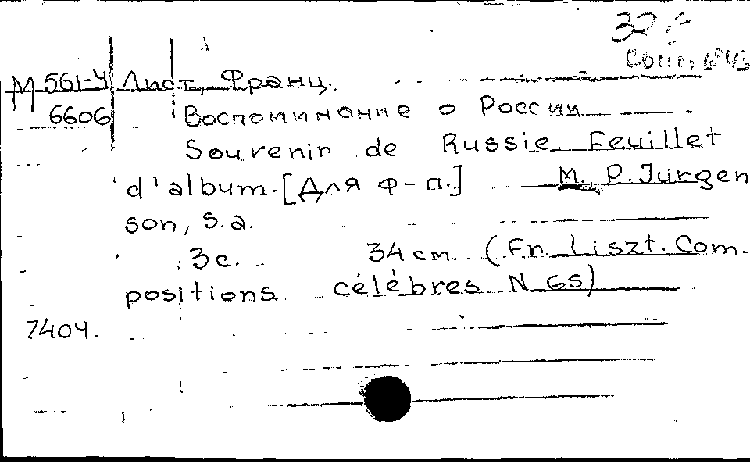 32
М 561-4 Лист, Франц.
6606 Воспоминание о России
Souvenir de Russie Feuillet
d'album. [Для ф-п.] M., P. Jurgen
son, s.a.
3 c. 34 cm (Fr. Liszt. Com-
positions célèbres N 65)
7404.